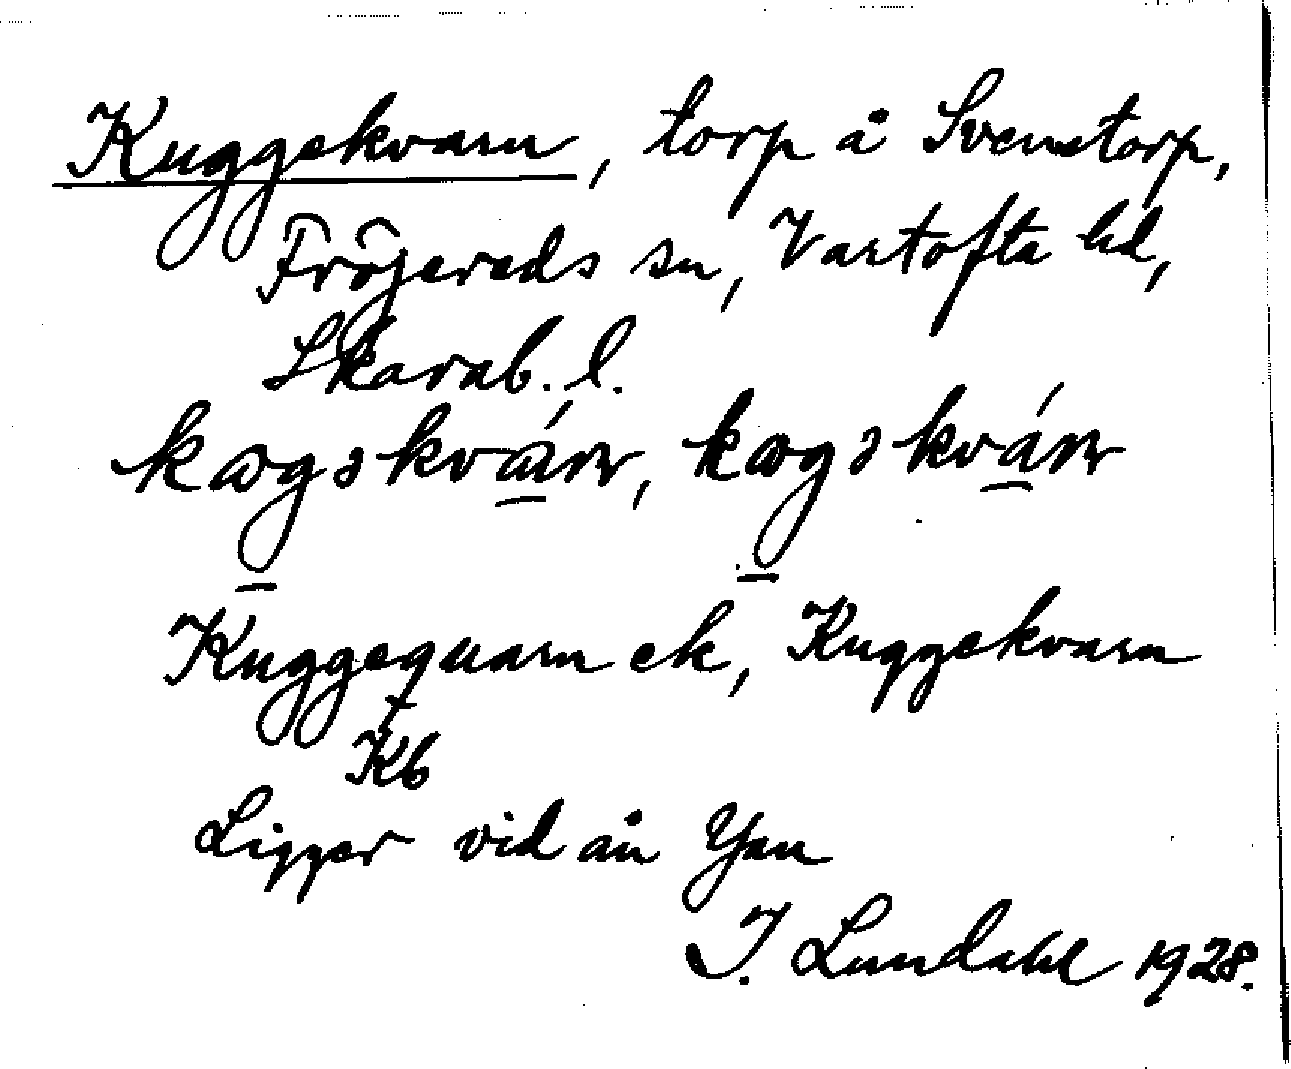 Kuggekvarn, torp å Svenstorp,
Fröjereds sn, Vartofta hd,
Skarab. l.
kogəkvárn, kogəkvárn
Kuggequarn ek, Kuggekvarn
Kb
Ligger vid ån Yan
I. Lundahl 1928.